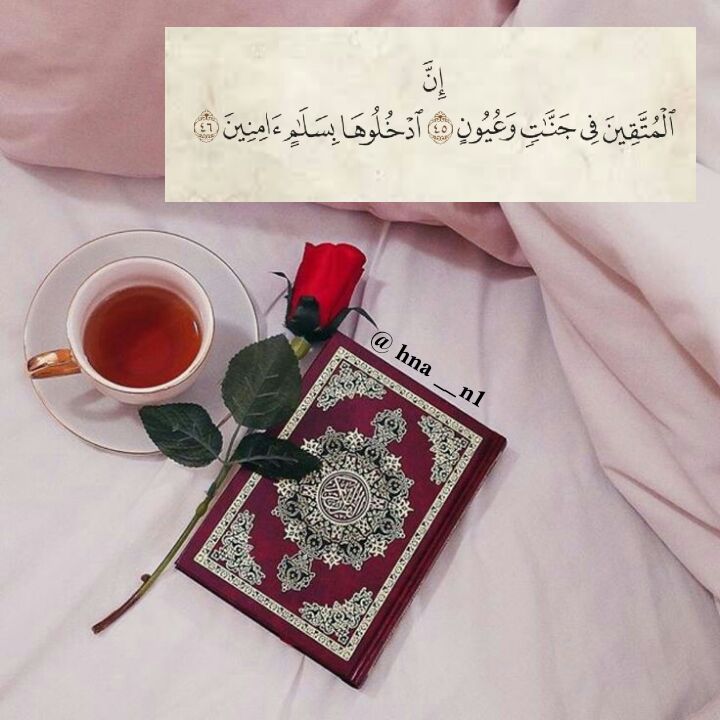 إِنَّ
ٱلْمُتَّقِينَ فِى جَنَّـٰتٍ وَعُيُونٍ ٤٥ ٱدْخُلُوهَا بِسَلَـٰمٍ ءَامِنِينَ ٤٦
@ hna __ n1